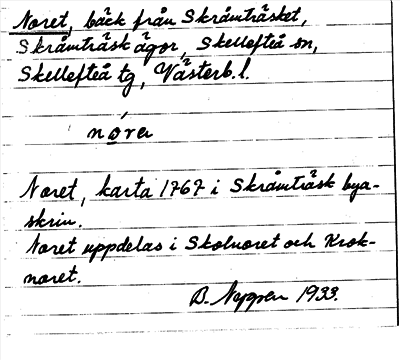 Noret, bäck från Skråmträsket,
Skråmträsk ägor, Skellefteå sn,
Skellefteå tg, Västerb. l.
nǫ́ra
Noret, karta 1767 i Skråmträsk bya-
skrin.
Noret uppdelas i Skolnoret och Krok-
noret.
B. Nygren 1933.